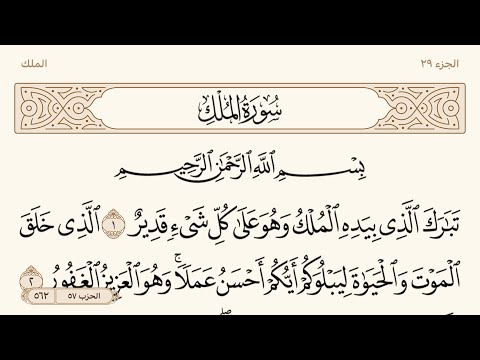 الجزء ٢٩
الملك
سُورَةُ المُلْكِ
بِسْمِ اللَّهِ الرَّحْمَٰنِ الرَّحِيمِ
تَبَارَكَ الَّذِي بِيَدِهِ الْمُلْكُ وَهُوَ عَلَىٰ كُلِّ شَيْءٍ قَدِيرٌ ١ الَّذِي خَلَقَ
الْمَوْتَ وَالْحَيَوٰةَ لِيَبْلُوَكُمْ أَيُّكُمْ أَحْسَنُ عَمَلًا ۚ وَهُوَ الْعَزِيزُ الْغَفُورُ ٢
الحزب ٥٧
٥٦٢